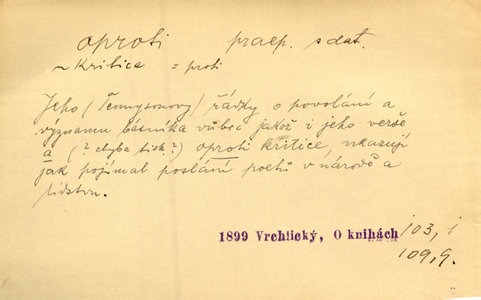 oproti praep. s dat.
~ Kritice = proti
Jeho (Tennysonovy) řádky o povolání a
významu básníka vůbec jakož i jeho verše
a (? chyba tisk.?) oproti kritice, ukazují
jak pojímal poslání poetů v národě a
lidstvu.
1899 Vrchlický, O knihách 103, i
109,9.